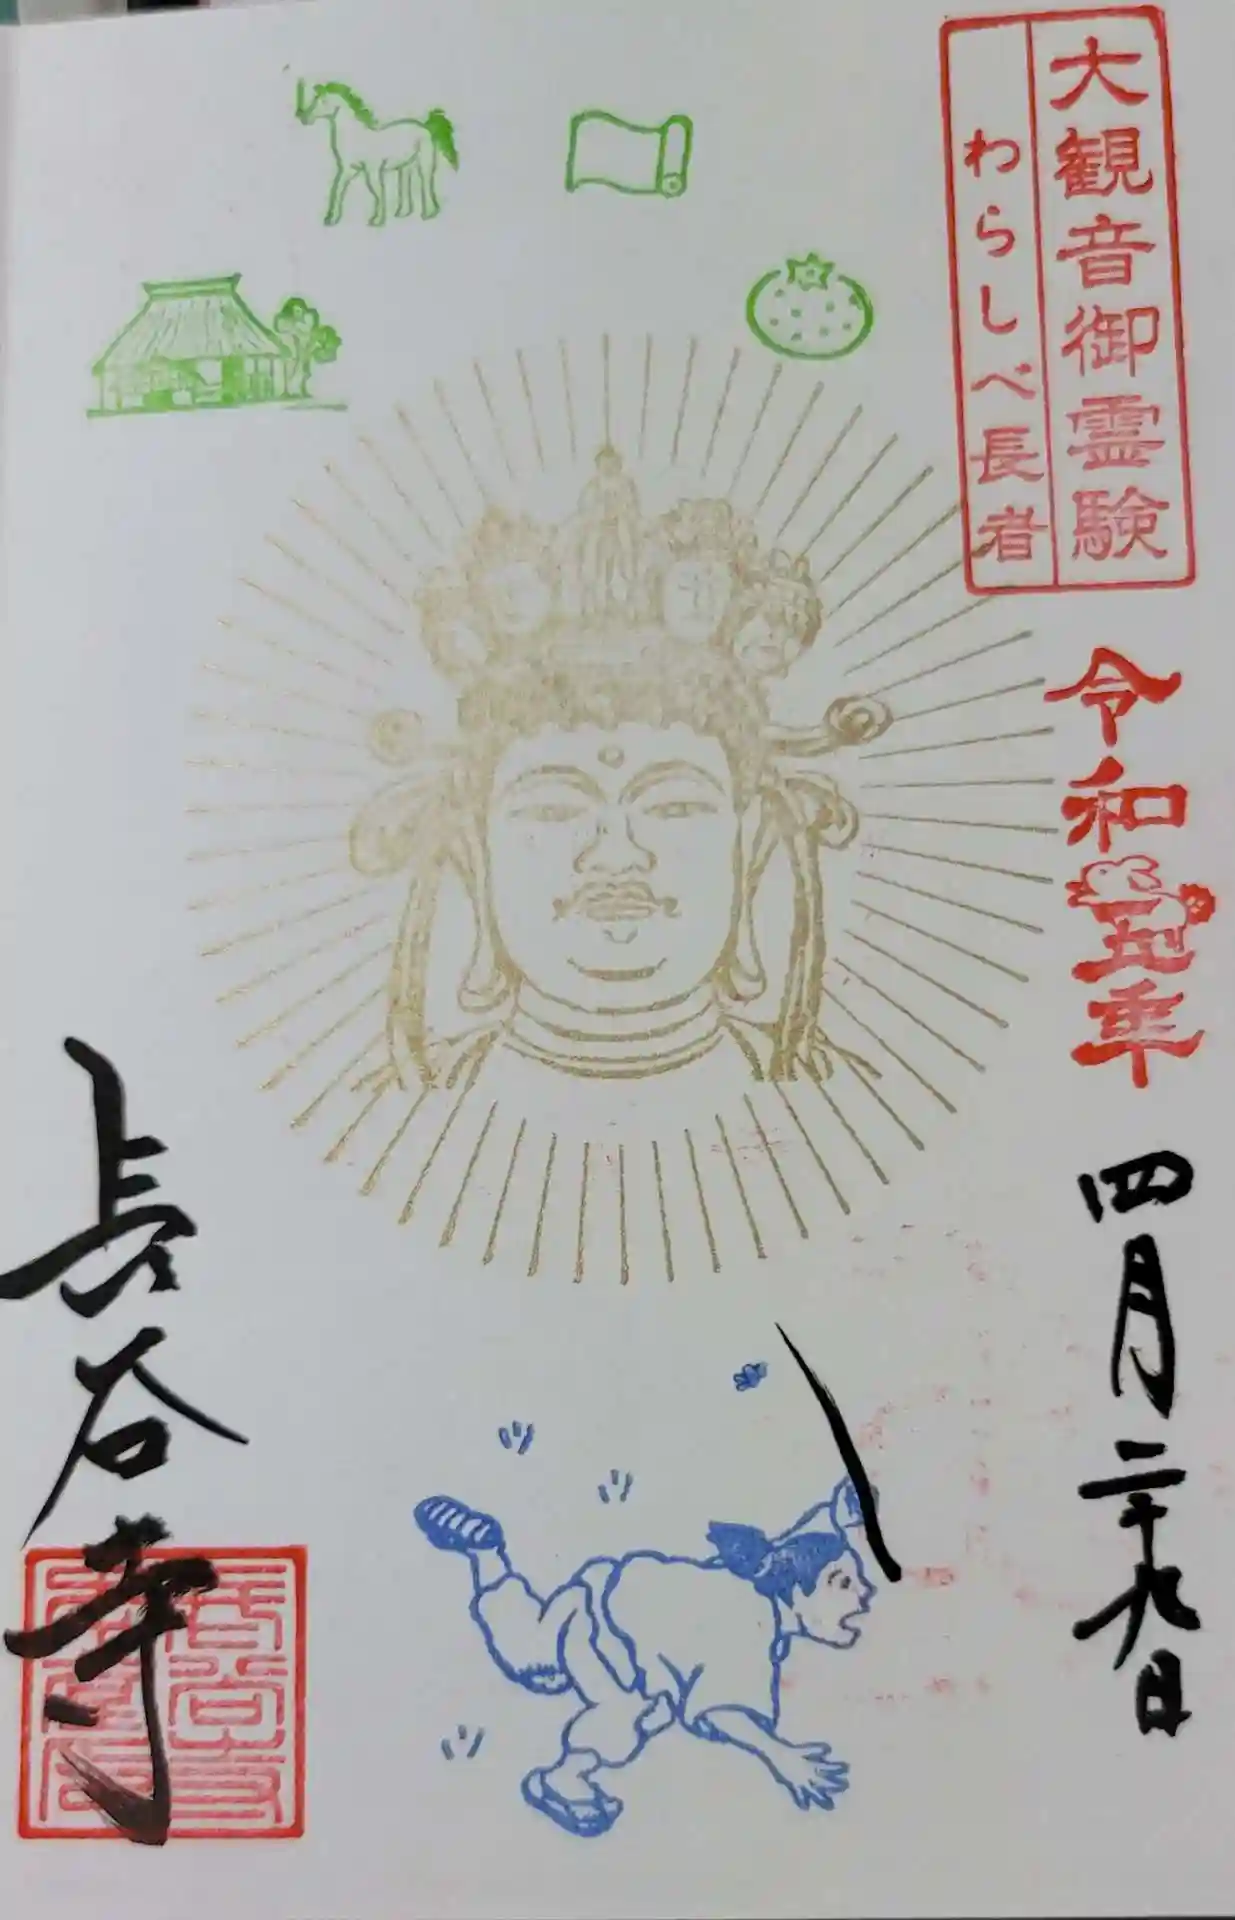 大観音御霊験
わらしべ長者
令和五年
四月二十九日
長谷寺